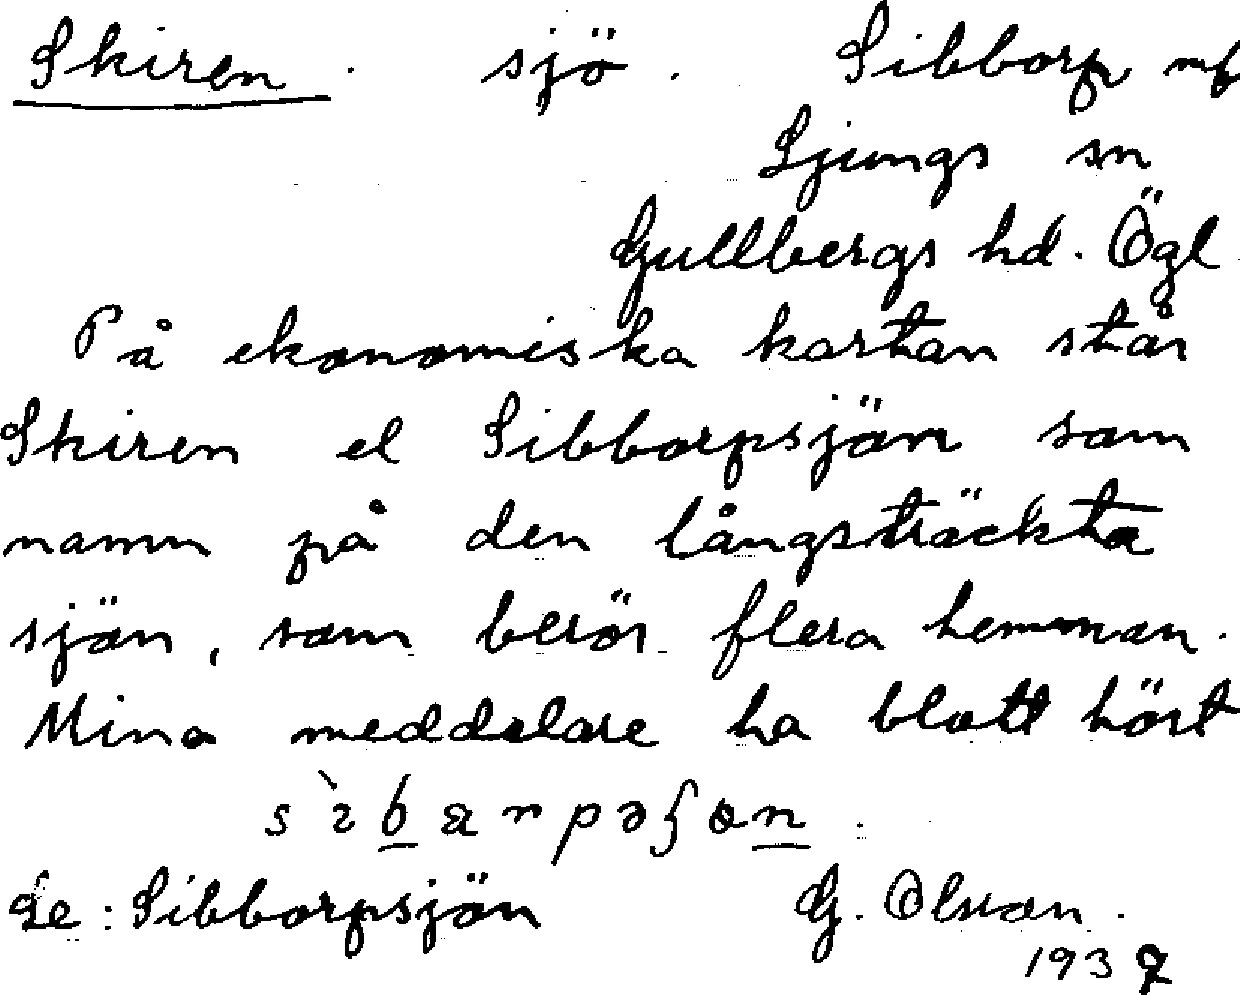 Skiren. sjö. Sibborp mf
Ljungs sn
Gullbergs hd. Ögl.
På ekonomiska kartan står
Skiren el Sibborpsjön som
namn på den långsträckta
sjön, som berör flera hemman.
Mina meddelare ha blott hört
Se: Sibborpsjön G. Olson.
1937